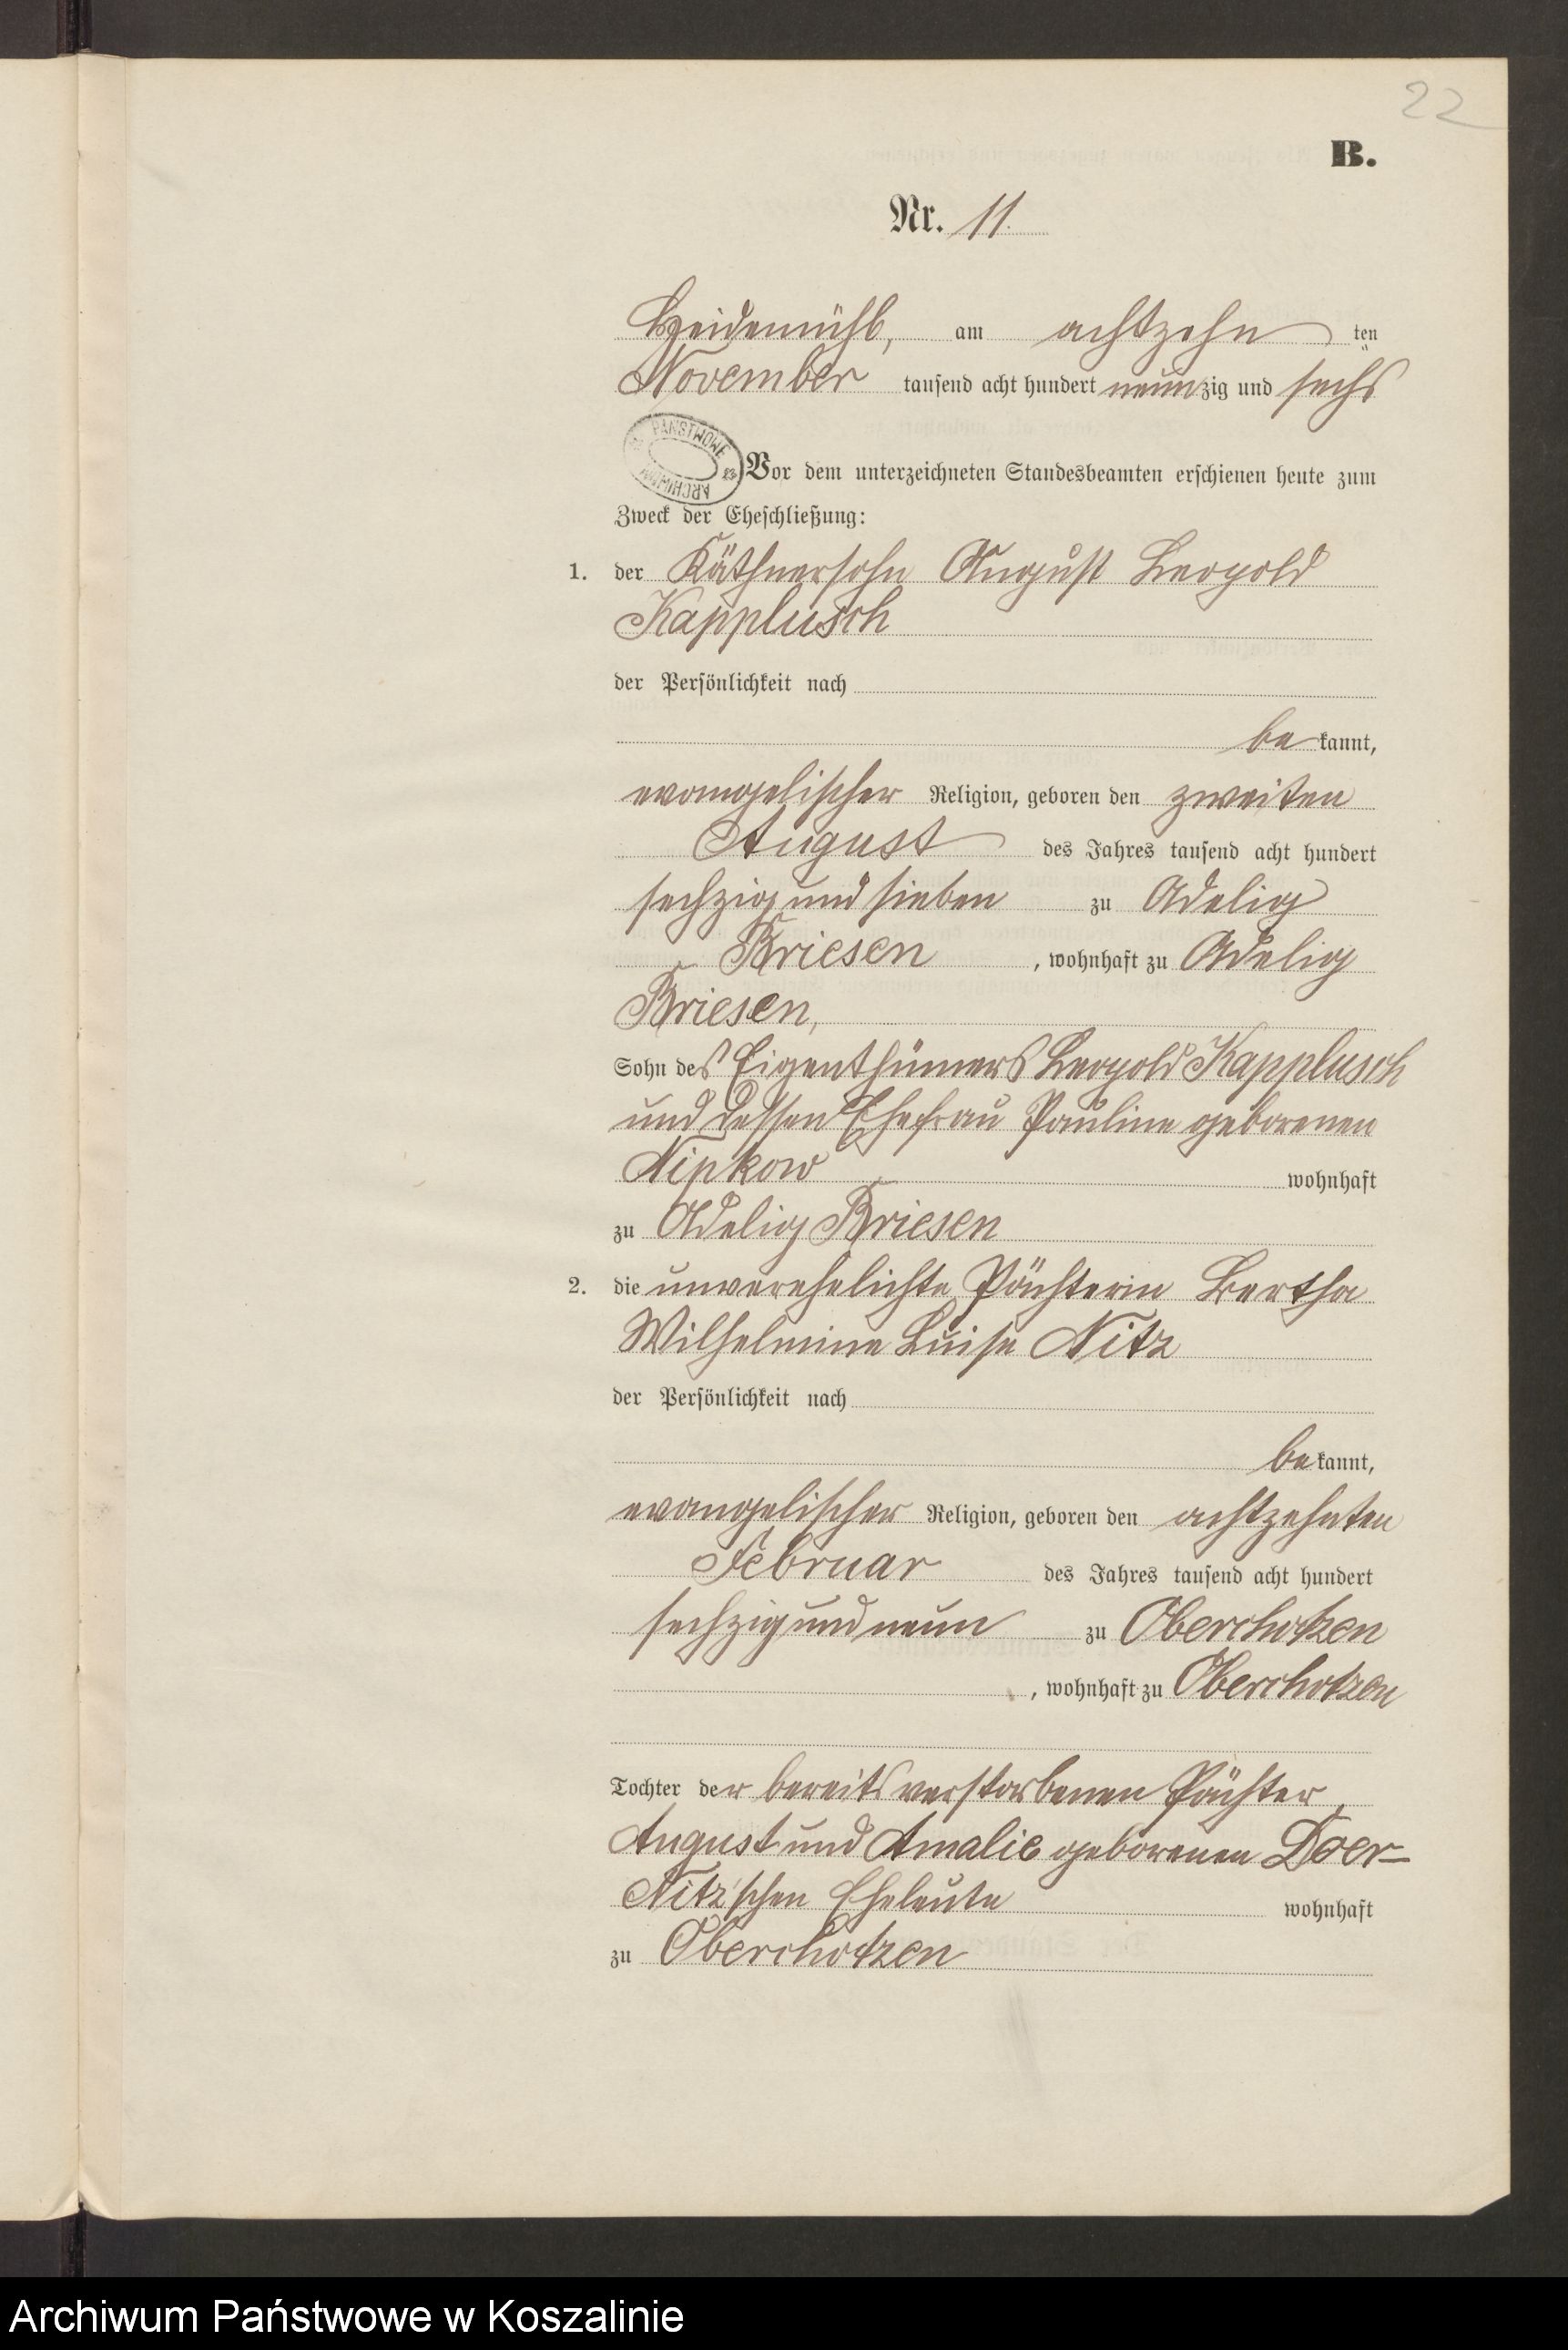 22
B.
Nr. 11.
Heidemühl, am achtzehn ten
November tausend acht hundert neunzig und sechs
PAŃSTWOWE ARCHIWUM
Vor dem unterzeichneten Standesbeamten erschienen heute zum
Zweck der Eheschließung:
1. der Käthnersohn August Leopold
Kapplusch
der Persönlichkeit nach
be kannt,
evangelischer Religion, geboren den zweiten
August des Jahres tausend acht hundert
sechzig und sieben zu Adelig
Briesen, wohnhaft zu Adelig
Briesen,
Sohn des Eigenthümers Leopold Kapplusch
und dessen Ehefrau Pauline geborenen
Nipkow wohnhaft
zu Adelig Briesen
2. die unverehelichte Pächterin Bertha
Wilhelmine Luise Nitz
der Persönlichkeit nach
be kannt,
evangelischer Religion, geboren den achtzehnten
Februar des Jahres tausend acht hundert
sechzig und neun zu Oberchotzen
, wohnhaft zu Oberchotzen
Tochter der bereits verstorbenen Pächter
August und Amalie geborenen Doer-
Nitz'schen Eheleute wohnhaft
zu Oberchotzen
Archiwum Państwowe w Koszalinie